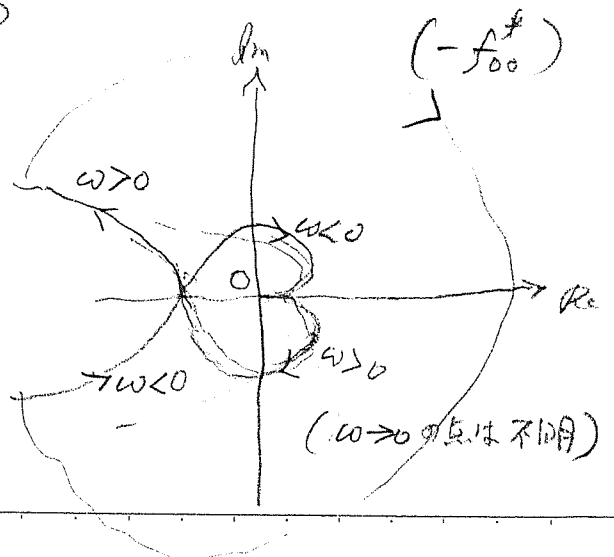 Im
(-f₀₀*)
ω>0
ω<0
O
Re
ω>0
ω<0
(ω→0の点は不明)